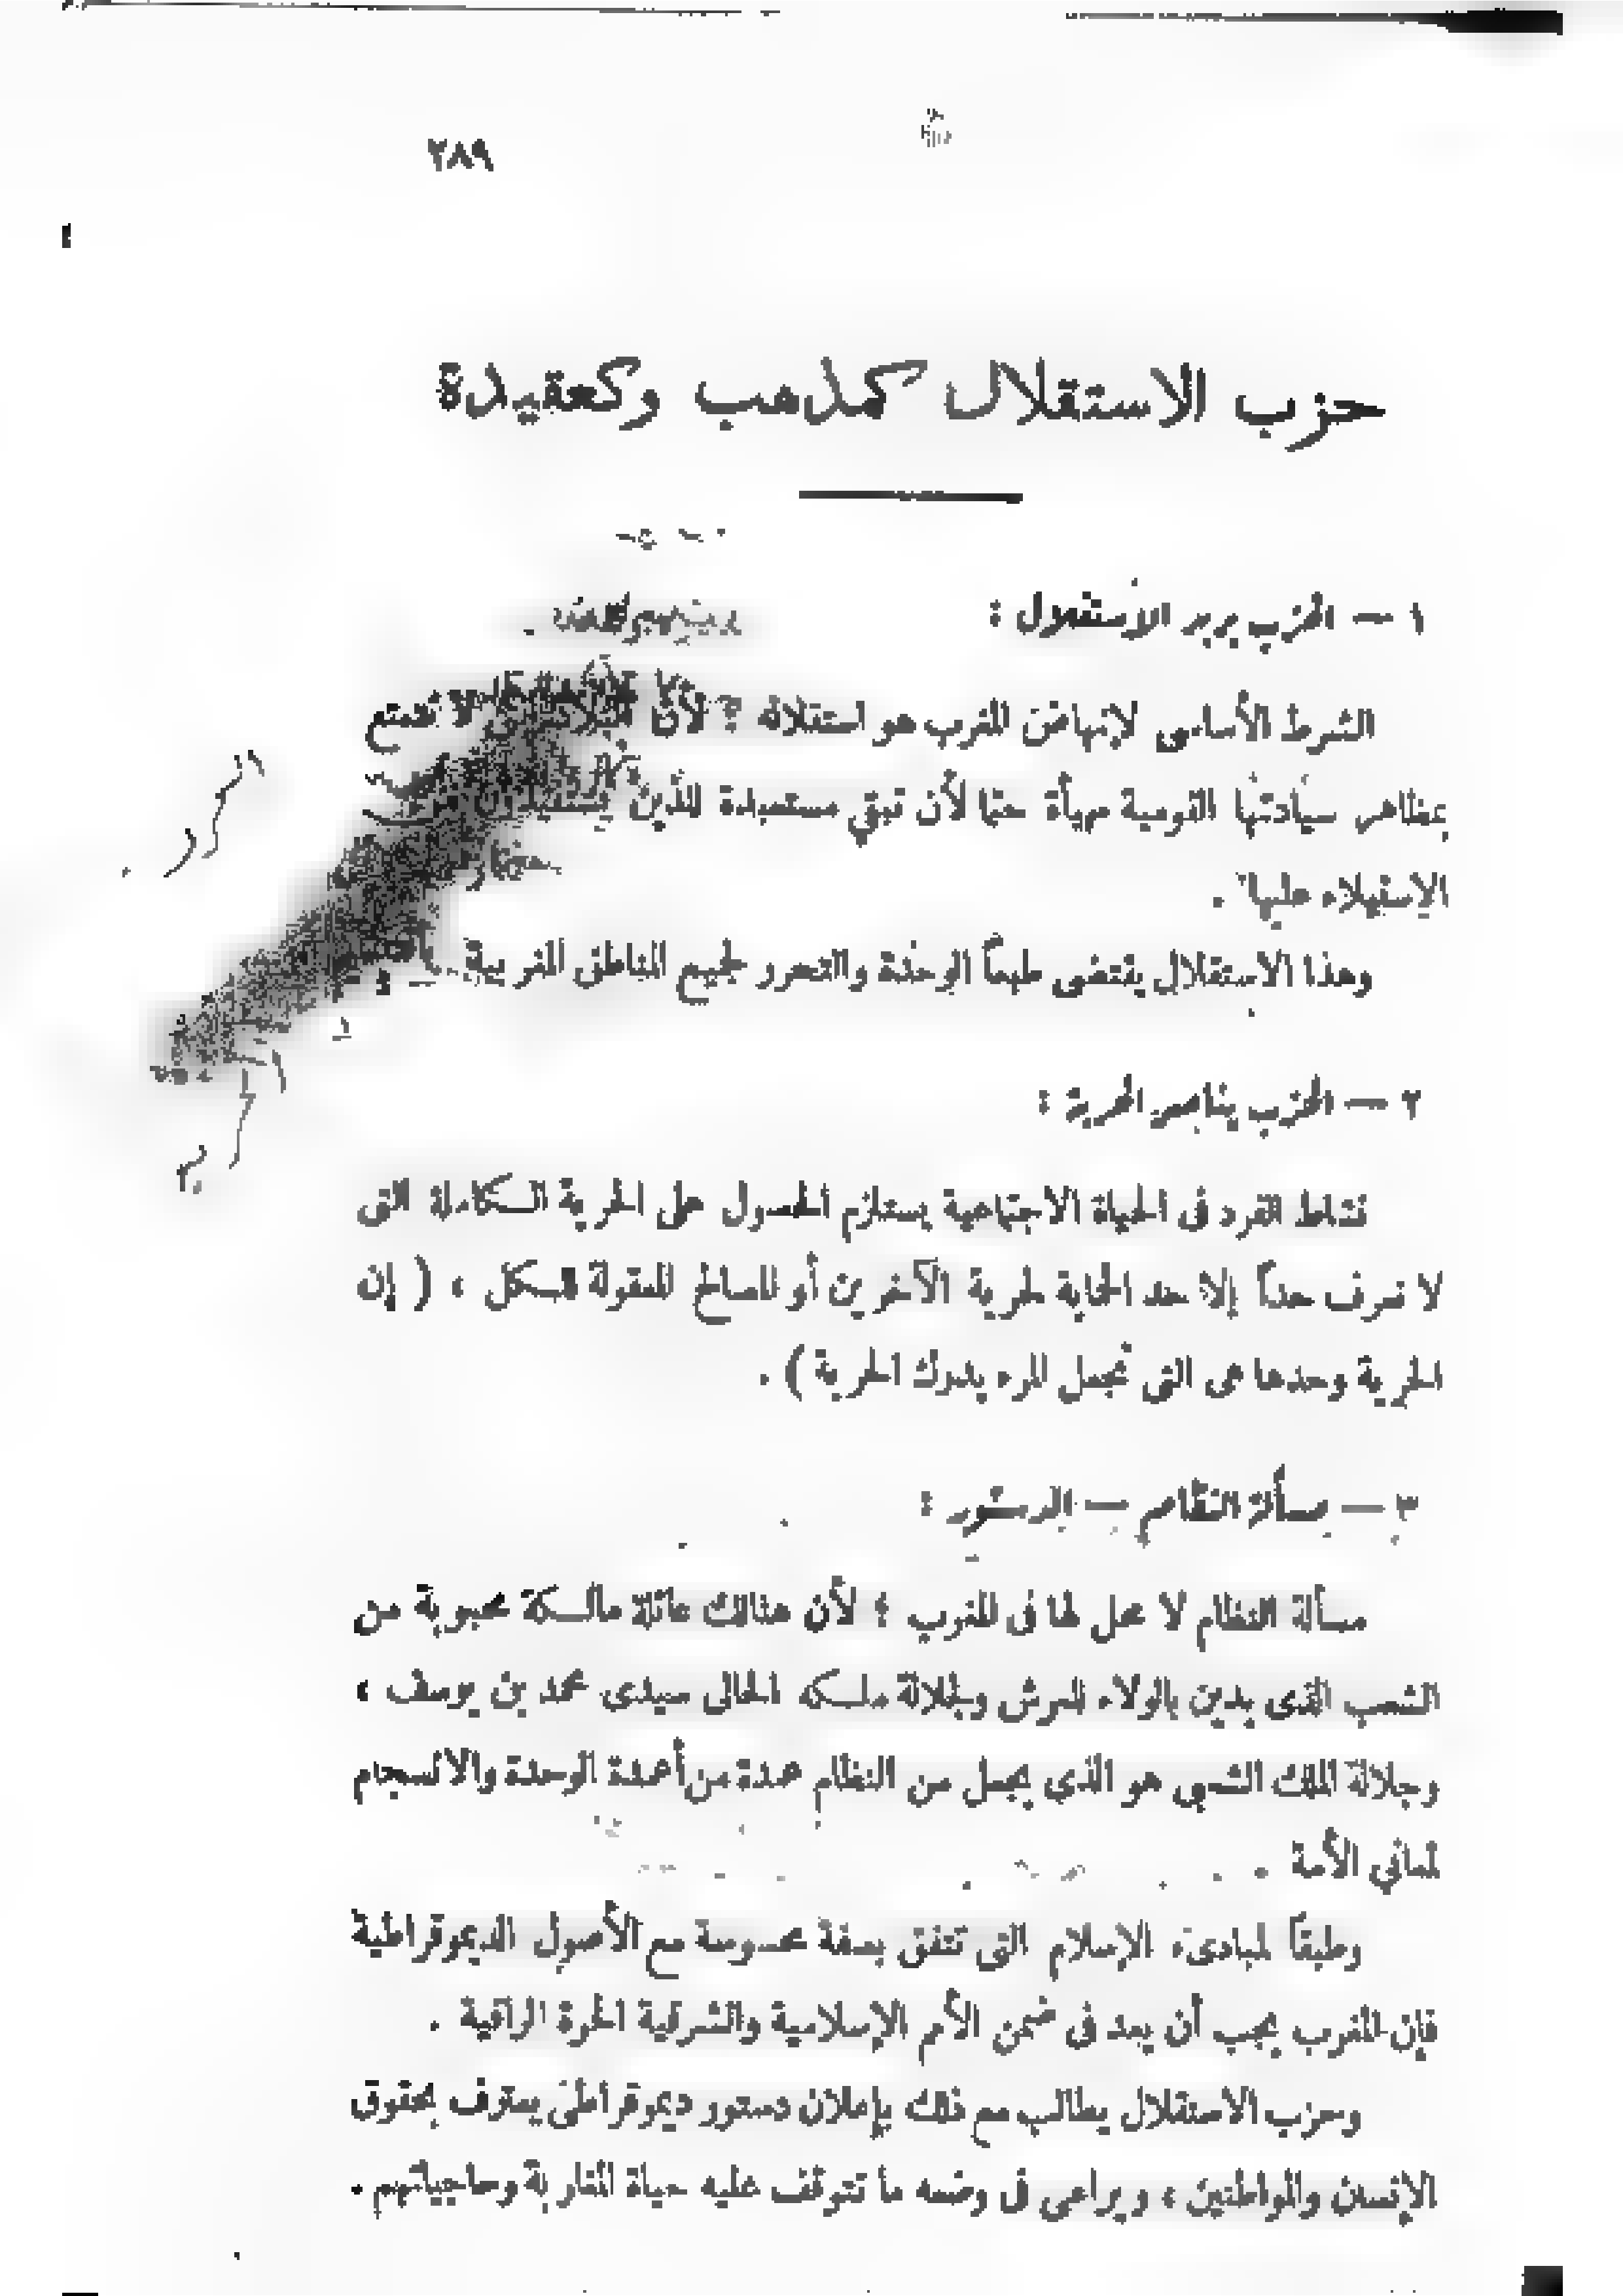 ٢٨٩
حزب الاستقلال كمذهب وكعقيدة
١ — الحزب يريد الاستقلال :
الشرط الأساسى لإنهاض المغرب هو استقلاله ؟ لأن لا تتمتع
بمظاهر سيادتها القومية مهيأة حتما لأن تبقى مستعبدة للذين
الاستيلاء عليها .
وهذا الاستقلال يقتضى طبعاً الوحدة والتحرر لجميع المناطق المغربية
٢ — الحزب يناصر الحرية :
نشاط الفرد فى الحياة الاجتماعية يستلزم الحصول على الحرية الكاملة التى
لا تعرف حداً إلا حد الحماية لحرية الآخرين أو للصالح المعقولة للكل ، ( إن
الحرية وحدها هى التى تجعل المرء يدرك الحرية ) .
٣ — مسألة النظام — الدستور :
مسألة النظام لا محل لها فى المغرب ؛ لأن هنالك عائلة مالكة محبوبة من
الشعب الذى يدين بالولاء للعرش ولجلالة ملكه الحالى سيدى محمد بن يوسف ،
وجلالة الملك الشعبى هو الذى يجعل من النظام عمدة من أعمدة الوحدة والانسجام
لمانى الأمة .
وطبقاً لمبادىء الإسلام التى تتفق بصفة محسوسة مع الأصول الديموقراطية
فإن المغرب يجب أن يعد فى ضمن الأمم الإسلامية والشرقية الحرة الراقية .
وحزب الاستقلال يطالب مع ذلك بإعلان دستور ديموقراطى يعترف بحقوق
الإنسان والمواطنين ، ويراعى فى وضعه ما تتوقف عليه حياة المغاربة وحاجياتهم .